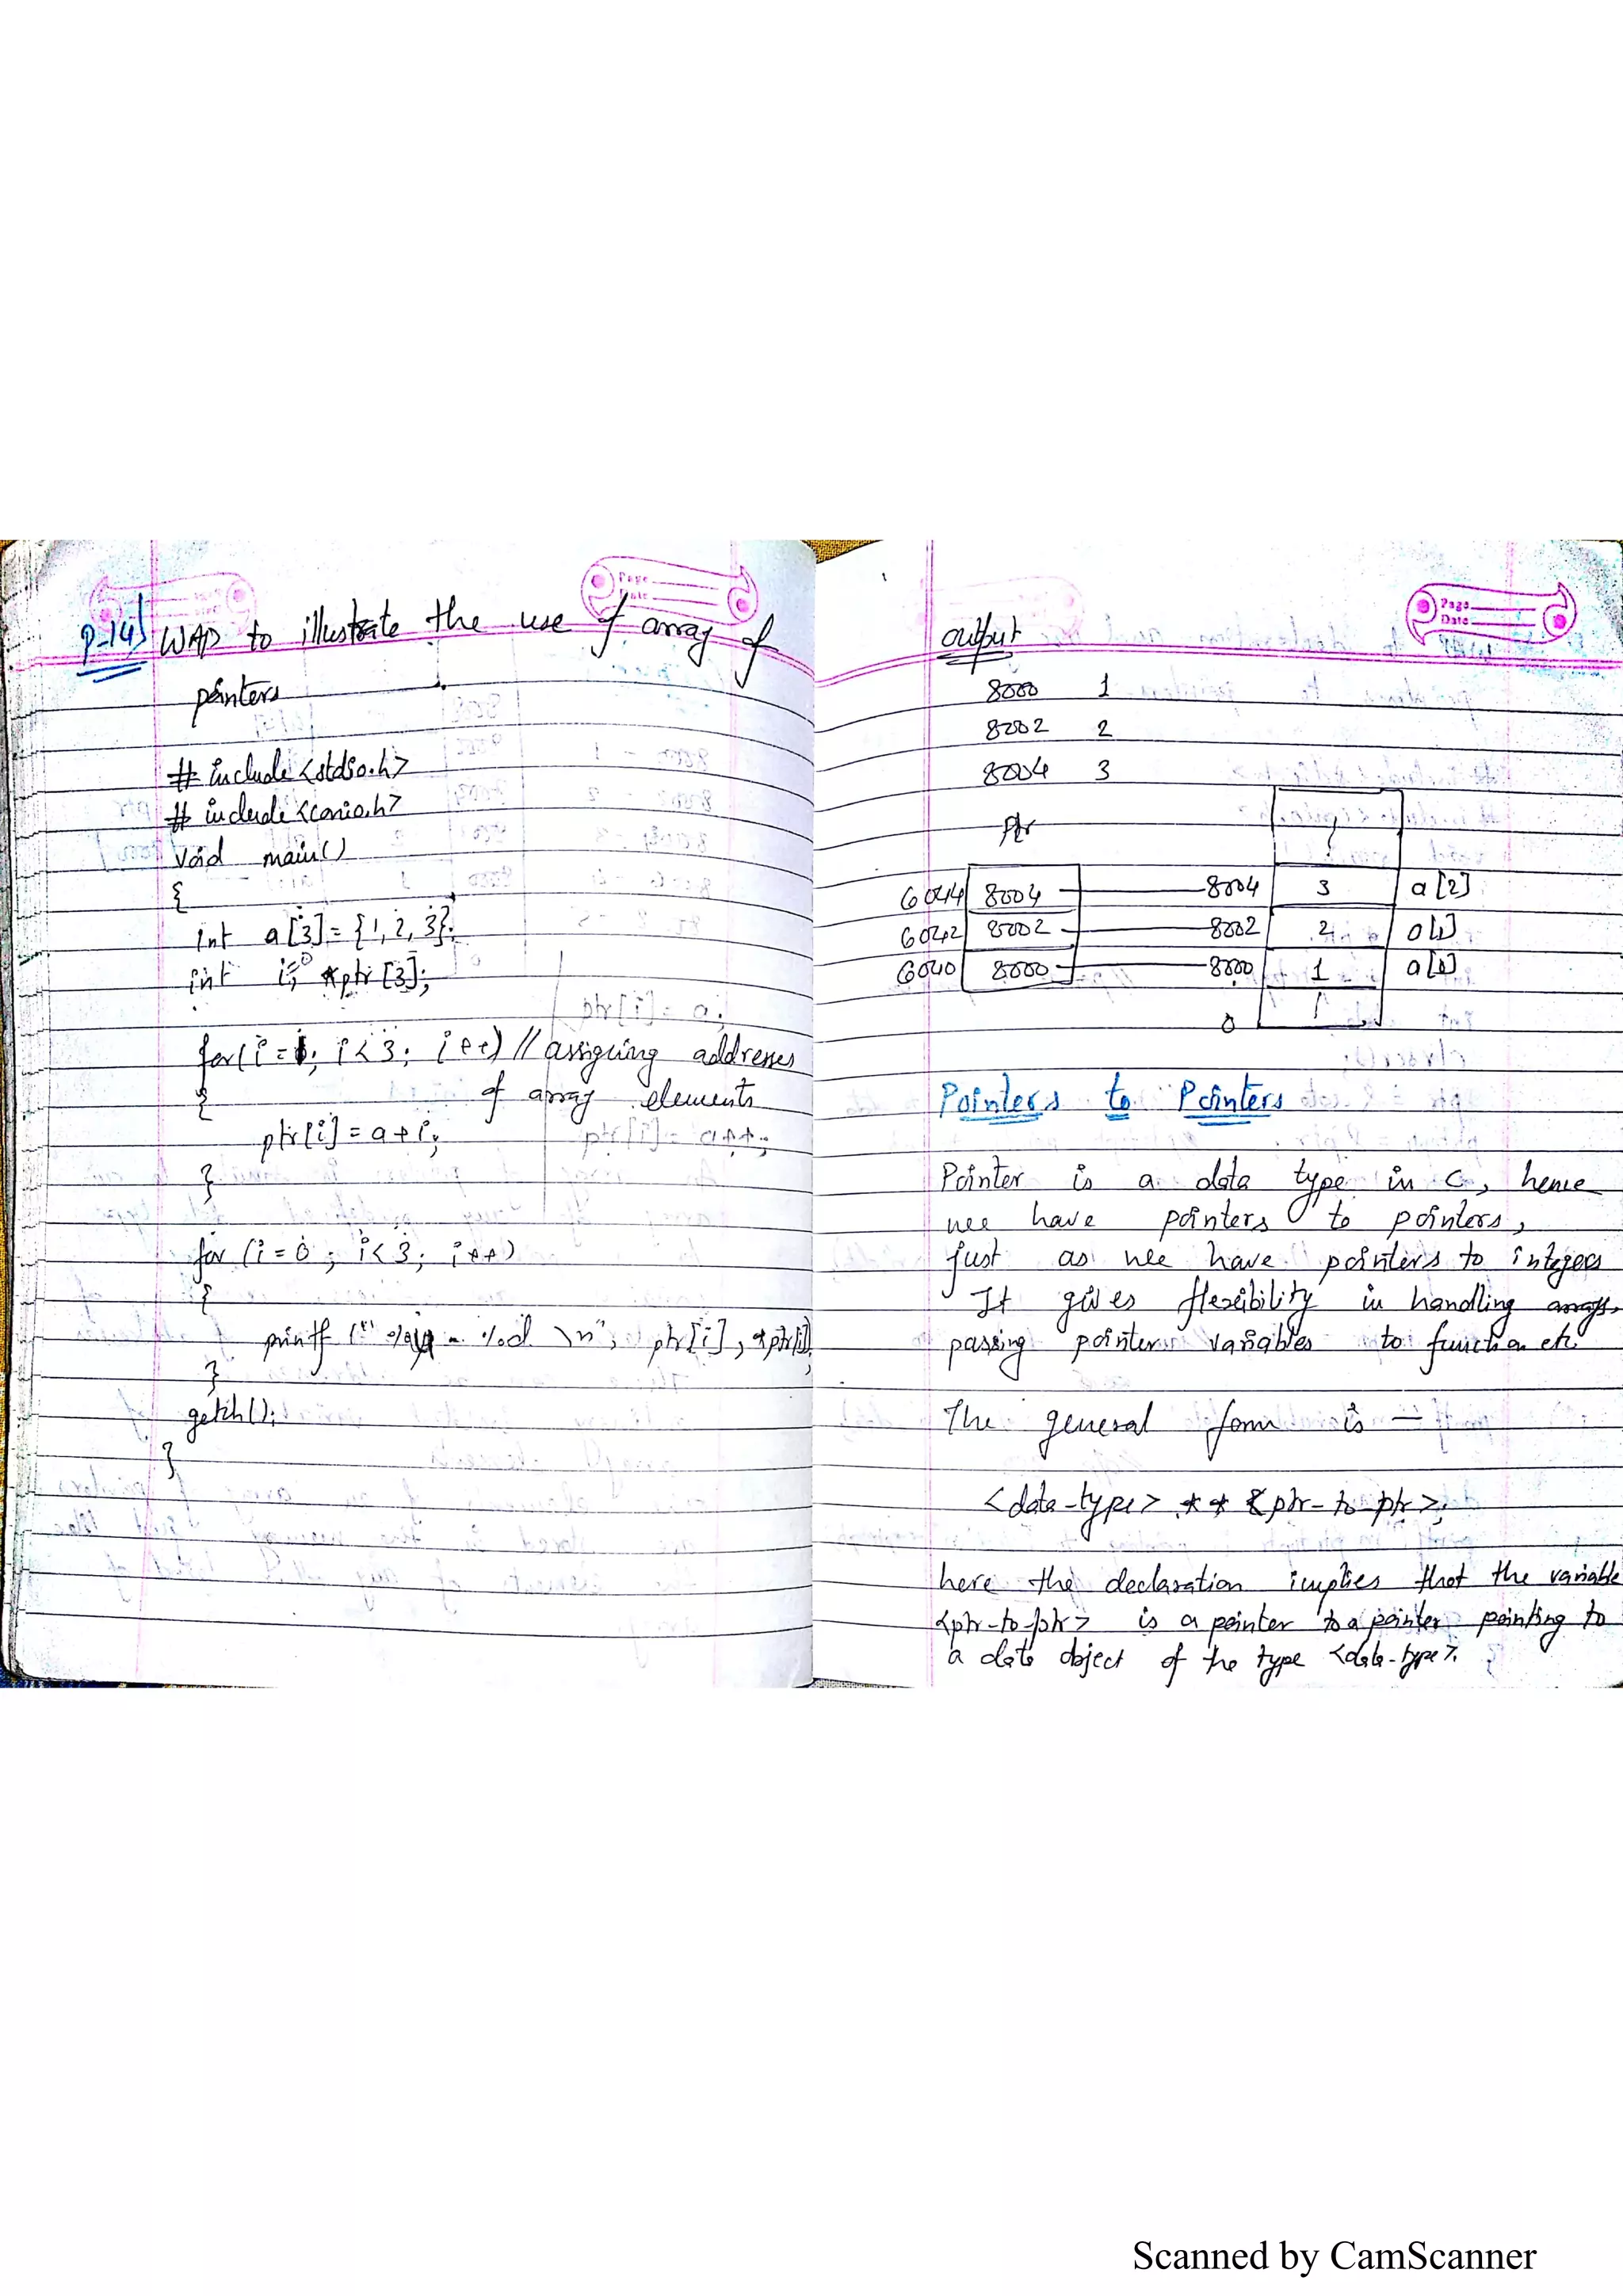 P-14) WAP to illustrate the use of array of
pointers
# include <stdio.h>
# include <conio.h>
void main()
{
int a[3] = {1, 2, 3};
int i, *ptr[3];
ptr[i] = a;
for(i = 0; i < 3; i++) // assigning addresses
{ of array elements
ptr[i] = a + i; ptr[i] = a++;
}
for (i = 0; i < 3; i++)
{
printf (" %u - %d \n", ptr[i], *ptr[i]);
}
getch();
}
Page
Date
output
8000 1
8002 2
8004 3
Ptr
6044 8004 8004 3 a[2]
6042 8002 8002 2 a[1]
6040 8000 8000 1 a[0]
0
Pointers to Pointers
Pointer is a data type in C, hence
we have pointers to pointers,
just as we have pointers to integers
It gives flexibility in handling arrays,
passing pointer variables to function etc.
The general form is —
<data-type> ** <ptr-to-ptr>;
here the declaration implies that the variable
<ptr-to-ptr> is a pointer to a pointer pointing to
a data object of the type <data-type>.
Scanned by CamScanner